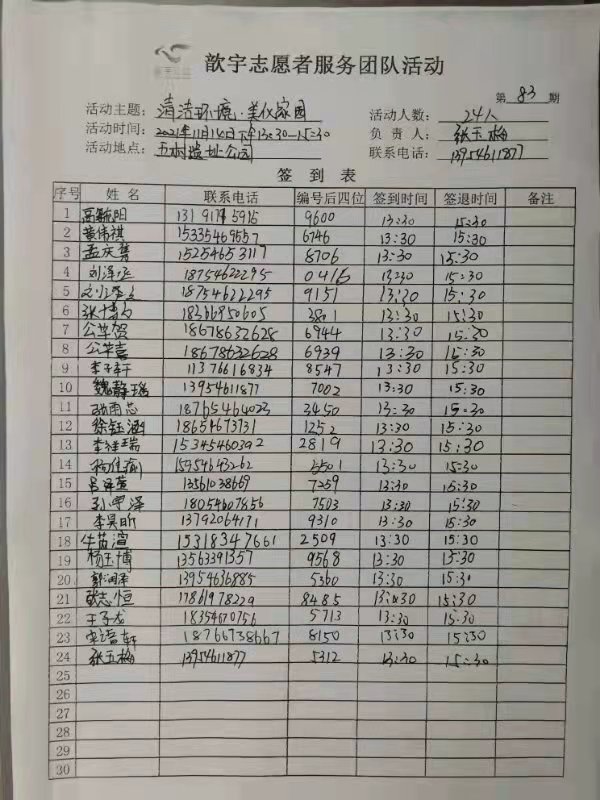 歆宇志愿者服务团队活动
第 83 期
活动主题: 清洁环境·美化家园 活动人数: 24人
活动时间: 2021年11月14日下午13:30—15:30 负责人: 张玉梅
活动地点: 五村遗址公园 联系电话: 13954611877
签到表
序号 姓名 联系电话 编号后四位 签到时间 签退时间 备注
1 高毓阳 9600 13:30 15:30
2 黄伟祺 15335469557 6746 13:30 15:30
3 孟庆隽 15254653117 8706 13:30 15:30
4 刘泽丞 18754622295 0416 13:30 15:30
5 18754622295 9151 13:30 15:30
6 18266850605 3801 13:30 15:30
7 公芊贺 18678632628 6944 13:30 15:30
8 公芊喜 18678632628 6939 13:30 15:30
9 李子轩 11376616834 8547 13:30 15:30
10 魏静瑶 13954611877 7002 13:30 15:30
11 张雨芯 18765464023 3450 13:30 15:30
12 徐钰涵 18654673731 1252 13:30 15:30
13 李祥瑞 15345460392 2819 13:30 15:30
14 杨佳瑜 15954643262 5501 13:30 15:30
15 吕泽萱 13561038669 7259 13:30 15:30
16 18054607856 7503 13:30 15:30
17 李昊昕 13792064171 9310 13:30 15:30
18 牛苗渲 15318347661 2509 13:30 15:30
19 杨玉博 13563391357 9568 13:30 15:30
20 郭润泽 13954636885 5360 13:30 15:30
21 耿志恒 17861978229 8485 13:30 15:30
22 王子龙 18354670756 5713 13:30 15:30
23 宋语轩 18766738667 8150 13:30 15:30
24 张玉梅 13954611877 5312 13:30 15:30
25
26
27
28
29
30